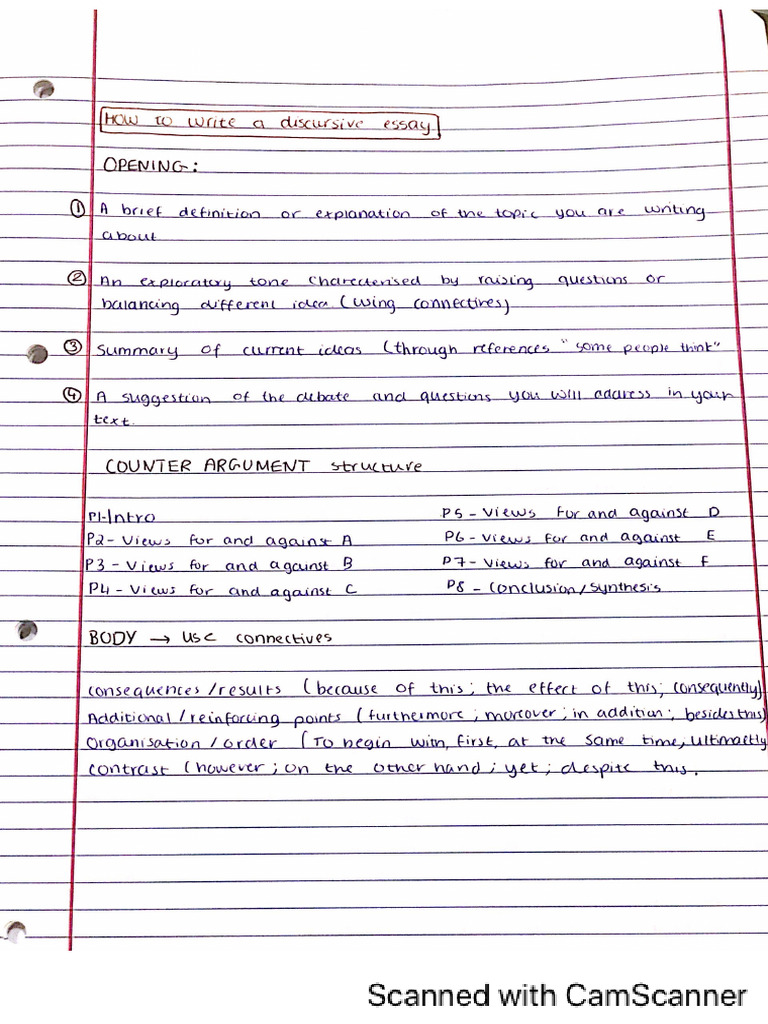 HOW TO write a discursive essay
OPENING:
① A brief definition or explanation of the topic you are writing
about
② An exploratory tone charecterised by raising questions or
balancing different idea (using connectives)
③ Summary of current ideas (through references "some people think"
④ A suggestion of the debate and questions you will address in your
text.
COUNTER ARGUMENT structure
P1-Intro
P2- Views for and against A
P3 - Views for and against B
P4 - Views for and against C
P5 - Views for and against D
P6 - Views for and against E
P7 - Views for and against F
P8 - Conclusion/synthesis
BODY → use connectives
consequences/results (because of this; the effect of this; consequently)
Additional/reinforcing points (furthermore; moreover; in addition; besides this)
Organisation/order (To begin with, first, at the same time, ultimately
contrast (however; on the other hand; yet; despite this.
Scanned with CamScanner